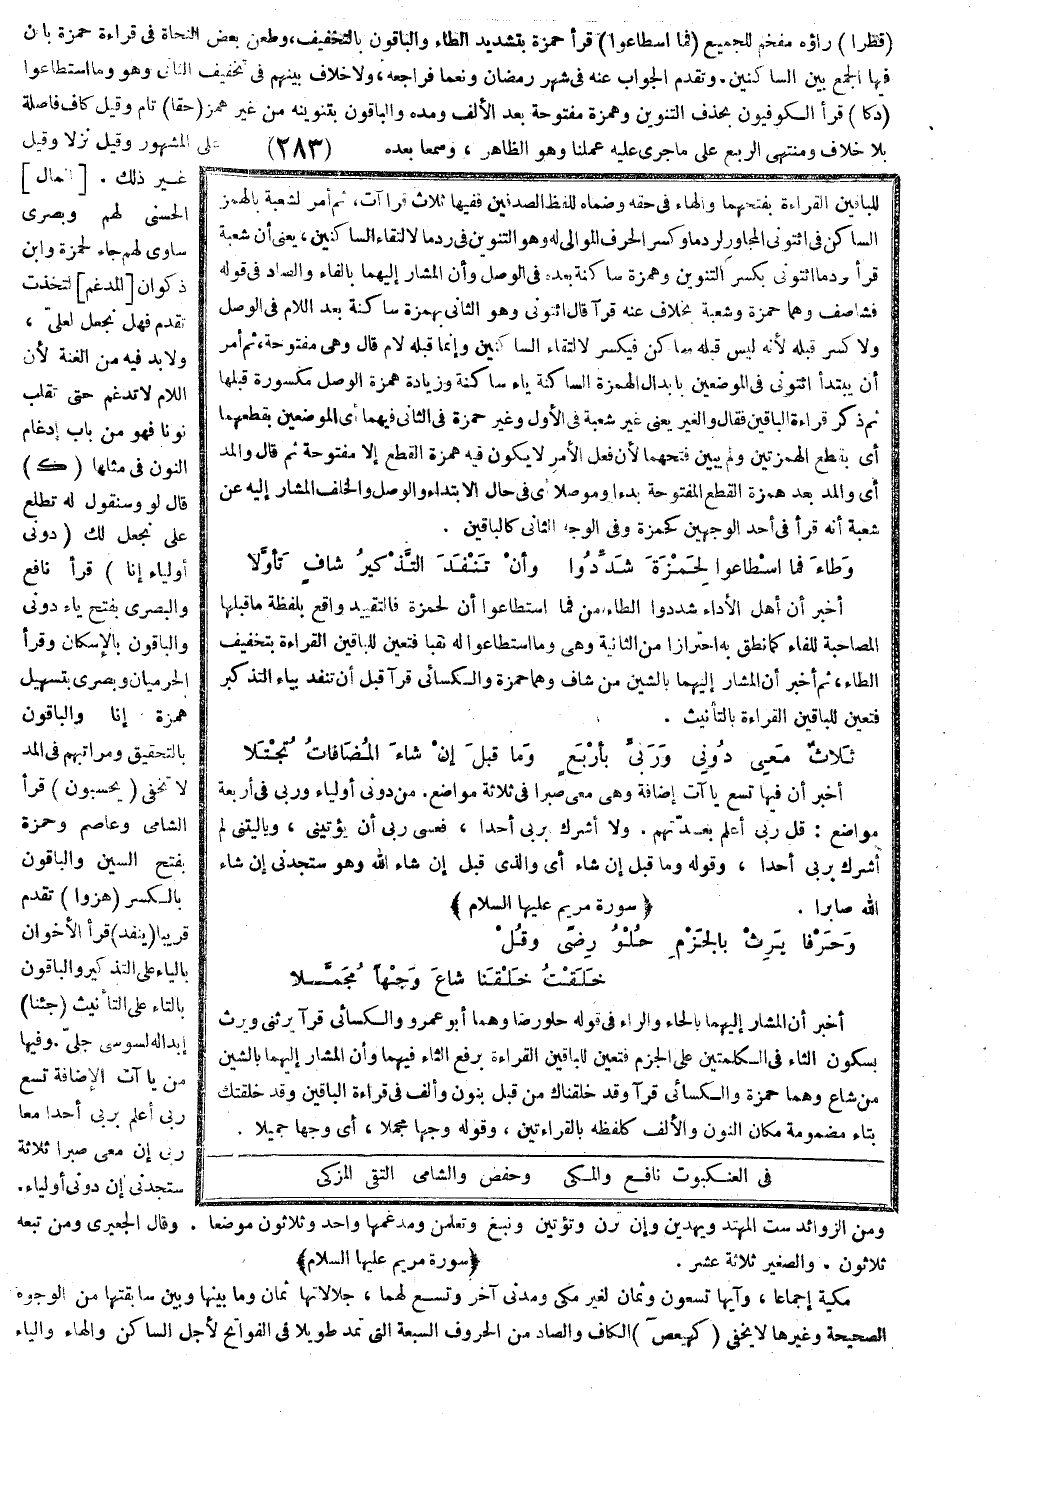 (قطرا) راؤه مفخم للجميع (فما اسطاعوا) قرأ حمزة بتشديد الطاء والباقون بالتخفيف، وطعن بعض النحاة فى قراءة حمزة بان
فيها الجمع بين الساكنين. وتقدم الجواب عنه فى شهر رمضان ونعما فراجعه، ولاخلاف بينهم فى تخفيف الثانى وهو وما استطاعوا
(دكا) قرأ الكوفيون بحذف التنوين وهمزة مفتوحة بعد الألف ومده والباقون بتنوينه من غير همز (حقا) تام وقيل كاف فاصلة
بلا خلاف ومنتهى الربع على ماجرى عليه عملنا وهو الظاهر ، وسمعا بعده (٢٨٣) على المشهور وقيل نزلا وقيل
غير ذلك . [الممال]
الحسنى لهم وبصرى
ساوى لهم جاء لحمزة وابن
ذكوان [المدغم] لتخذت
تقدم فهل نجعل لعلىّ ،
ولابد فيه من الغنة لأن
اللام لاتدغم حتى تقلب
نونا فهو من باب إدغام
النون فى مثلها (ك)
قال لو وسنقول له تطلع
على نجعل لك (دونى
أولياء إنا) قرأ نافع
والبصرى بفتح ياء دونى
والباقون بالإسكان وقرأ
الحرميان وبصرى بتسهيل
همزة إنا والباقون
بالتحقيق ومراتبهم فى المد
لا تخفى (يحسبون) قرأ
الشامى وعاصم وحمزة
بفتح السين والباقون
بالكسر (هزوا) تقدم
قريبا (ينفد) قرأ الأخوان
بالياء على التذكير والباقون
بالتاء على التأنيث (جئنا)
إبداله لسوسى جلىّ. وفيها
من ياآت الإضافة تسع
ربى أعلم بربى أحدا معا
ربى إن معى صبرا ثلاثة
ستجدنى إن دونى أولياء.
للباقين القراءة بفتحهما والهاء فى حقه وضماه للفظ الصدفين ففيها ثلاث قراآت، ثم أمر لشعبة بالهمز
الساكن فى ائتونى المجاور لردما وكسر الحرف الموالى له وهو التنوين فى ردما لالتقاء الساكنين، يعنى أن شعبة
قرأ ردما ائتونى بكسر التنوين وهمزة ساكنة بعده فى الوصل وأن المشار إليهما بالفاء والصاد فى قوله
فشاصف وهما حمزة وشعبة بخلاف عنه قرآ قال ائتونى وهو الثانى بهمزة ساكنة بعد اللام فى الوصل
ولا كسر قبله لأنه ليس قبله ساكن فيكسر لالتقاء الساكنين وإنما قبله لام قال وهى مفتوحة، ثم أمر
أن يبتدأ ائتونى فى الموضعين بابدال الهمزة الساكنة ياء ساكنة وزيادة همزة الوصل مكسورة قبلها
ثم ذكر قراءة الباقين فقال والغير يعنى غير شعبة فى الأول وغير حمزة فى الثانى فيهما أى الموضعين بقطعهما
أى بقطع الهمزتين ولم يبين فتحهما لأن فعل الأمر لايكون فيه همزة القطع إلا مفتوحة ثم قال والمد
أى والمد بعد همزة القطع المفتوحة بدءا وموصلا أى فى حال الابتداء والوصل والخلف المشار إليه عن
شعبة أنه قرأ فى أحد الوجهين كحمزة وفى الوجه الثانى كالباقين .
وَطَاءَ فما اسْطاعوا لِحَمْزَةَ شَدِّدُوا وأنْ تَنْفَدَ التَّذْكيرُ شافٍ تَأوَّلا
أخبر أن أهل الأداء شددوا الطاء من فما استطاعوا أن لحمزة فالتقييد واقع بلفظة ماقبلها
المصاحبة للفاء كما نطق به احترازا من الثانية وهى وما استطاعوا له نقبا فتعين للباقين القراءة بتخفيف
الطاء، ثم أخبر أن المشار إليهما بالشين من شاف وهما حمزة والكسائى قرآ قبل أن تنفد بياء التذكير
فتعين للباقين القراءة بالتأنيث .
ثَلاثٌ مَعِى دُونِي وَرَبىِّ بأرْبَعٍ وَما قبلَ إنْ شاءَ المُضَافاتُ تُجْتَلا
أخبر أن فيها تسع ياآت إضافة وهى معى صبرا فى ثلاثة مواضع. من دونى أولياء وربى فى أربعة
مواضع : قل ربى أعلم بعدّتهم . ولا أشرك بربى أحدا ، فعسى ربى أن يؤتينى ، وياليتنى لم
أشرك بربى أحدا ، وقوله وما قبل إن شاء أى والذى قبل إن شاء الله وهو ستجدنى إن شاء
الله صابرا . ﴿ سورة مريم عليها السلام ﴾
وَحَرْفا يَرِثْ بالجَزْمِ حُلْوُ رِضًى وقُلْ
خَلَقْتُ خَلَقْنَا شاعَ وَجْهاً مُجَمَّلا
أخبر أن المشار إليهما بالحاء والراء فى قوله حلو رضا وهما أبو عمرو والكسائى قرآ يرثنى ويرث
بسكون الثاء فى الكلمتين على الجزم فتعين للباقين القراءة برفع الثاء فيهما وأن المشار إليهما بالشين
من شاع وهما حمزة والكسائى قرآ وقد خلقناك من قبل بنون وألف فى قراءة الباقين وقد خلقتك
بتاء مضمومة مكان النون والألف كلفظه بالقراءتين ، وقوله وجها مجملا ، أى وجها جميلا .
فى العنكبوت نافع والمكى وحفص والشامى التقى المزكى
ومن الزوائد ست المهتد ويهدين وإن ترن وتؤتين ونبغ وتعلمن ومدغمها واحد وثلاثون موضعا . وقال الجعبرى ومن تبعه
ثلاثون . والصغير ثلاثة عشر . ﴿سورة مريم عليها السلام﴾
مكية إجماعا ، وآيها تسعون وثمان لغير مكى ومدنى آخر وتسع لهما ، جلالاتها ثمان وما بينها وبين سابقتها من الوجوه
الصحيحة وغيرها لايخفى (كهيعص) الكاف والصاد من الحروف السبعة التى تمد طويلا فى الفواتح لأجل الساكن والهاء والياء